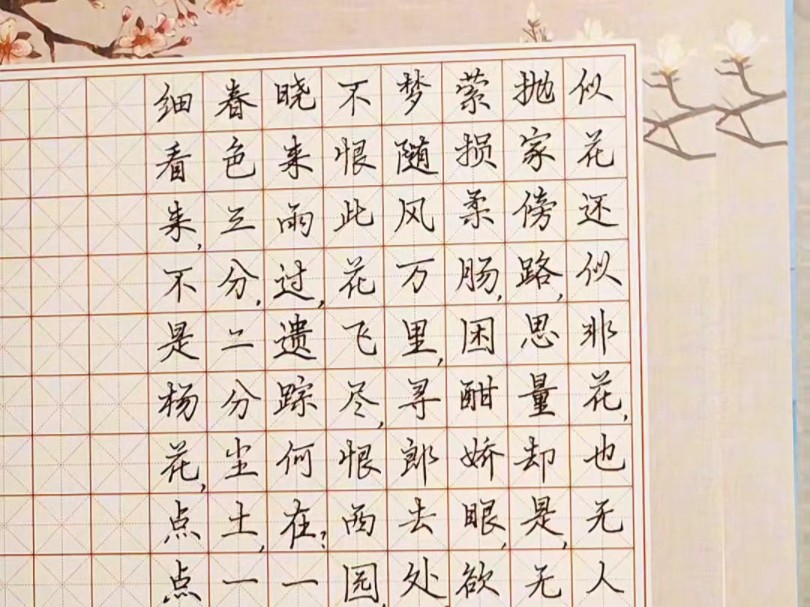 似花还似非花,也无人
抛家傍路,思量却是,无
萦损柔肠,困酣娇眼,欲
梦随风万里,寻郎去处,
不恨此花飞尽,恨西园,
晓来雨过,遗踪何在?一
春色三分,二分尘土,一
细看来,不是杨花,点点